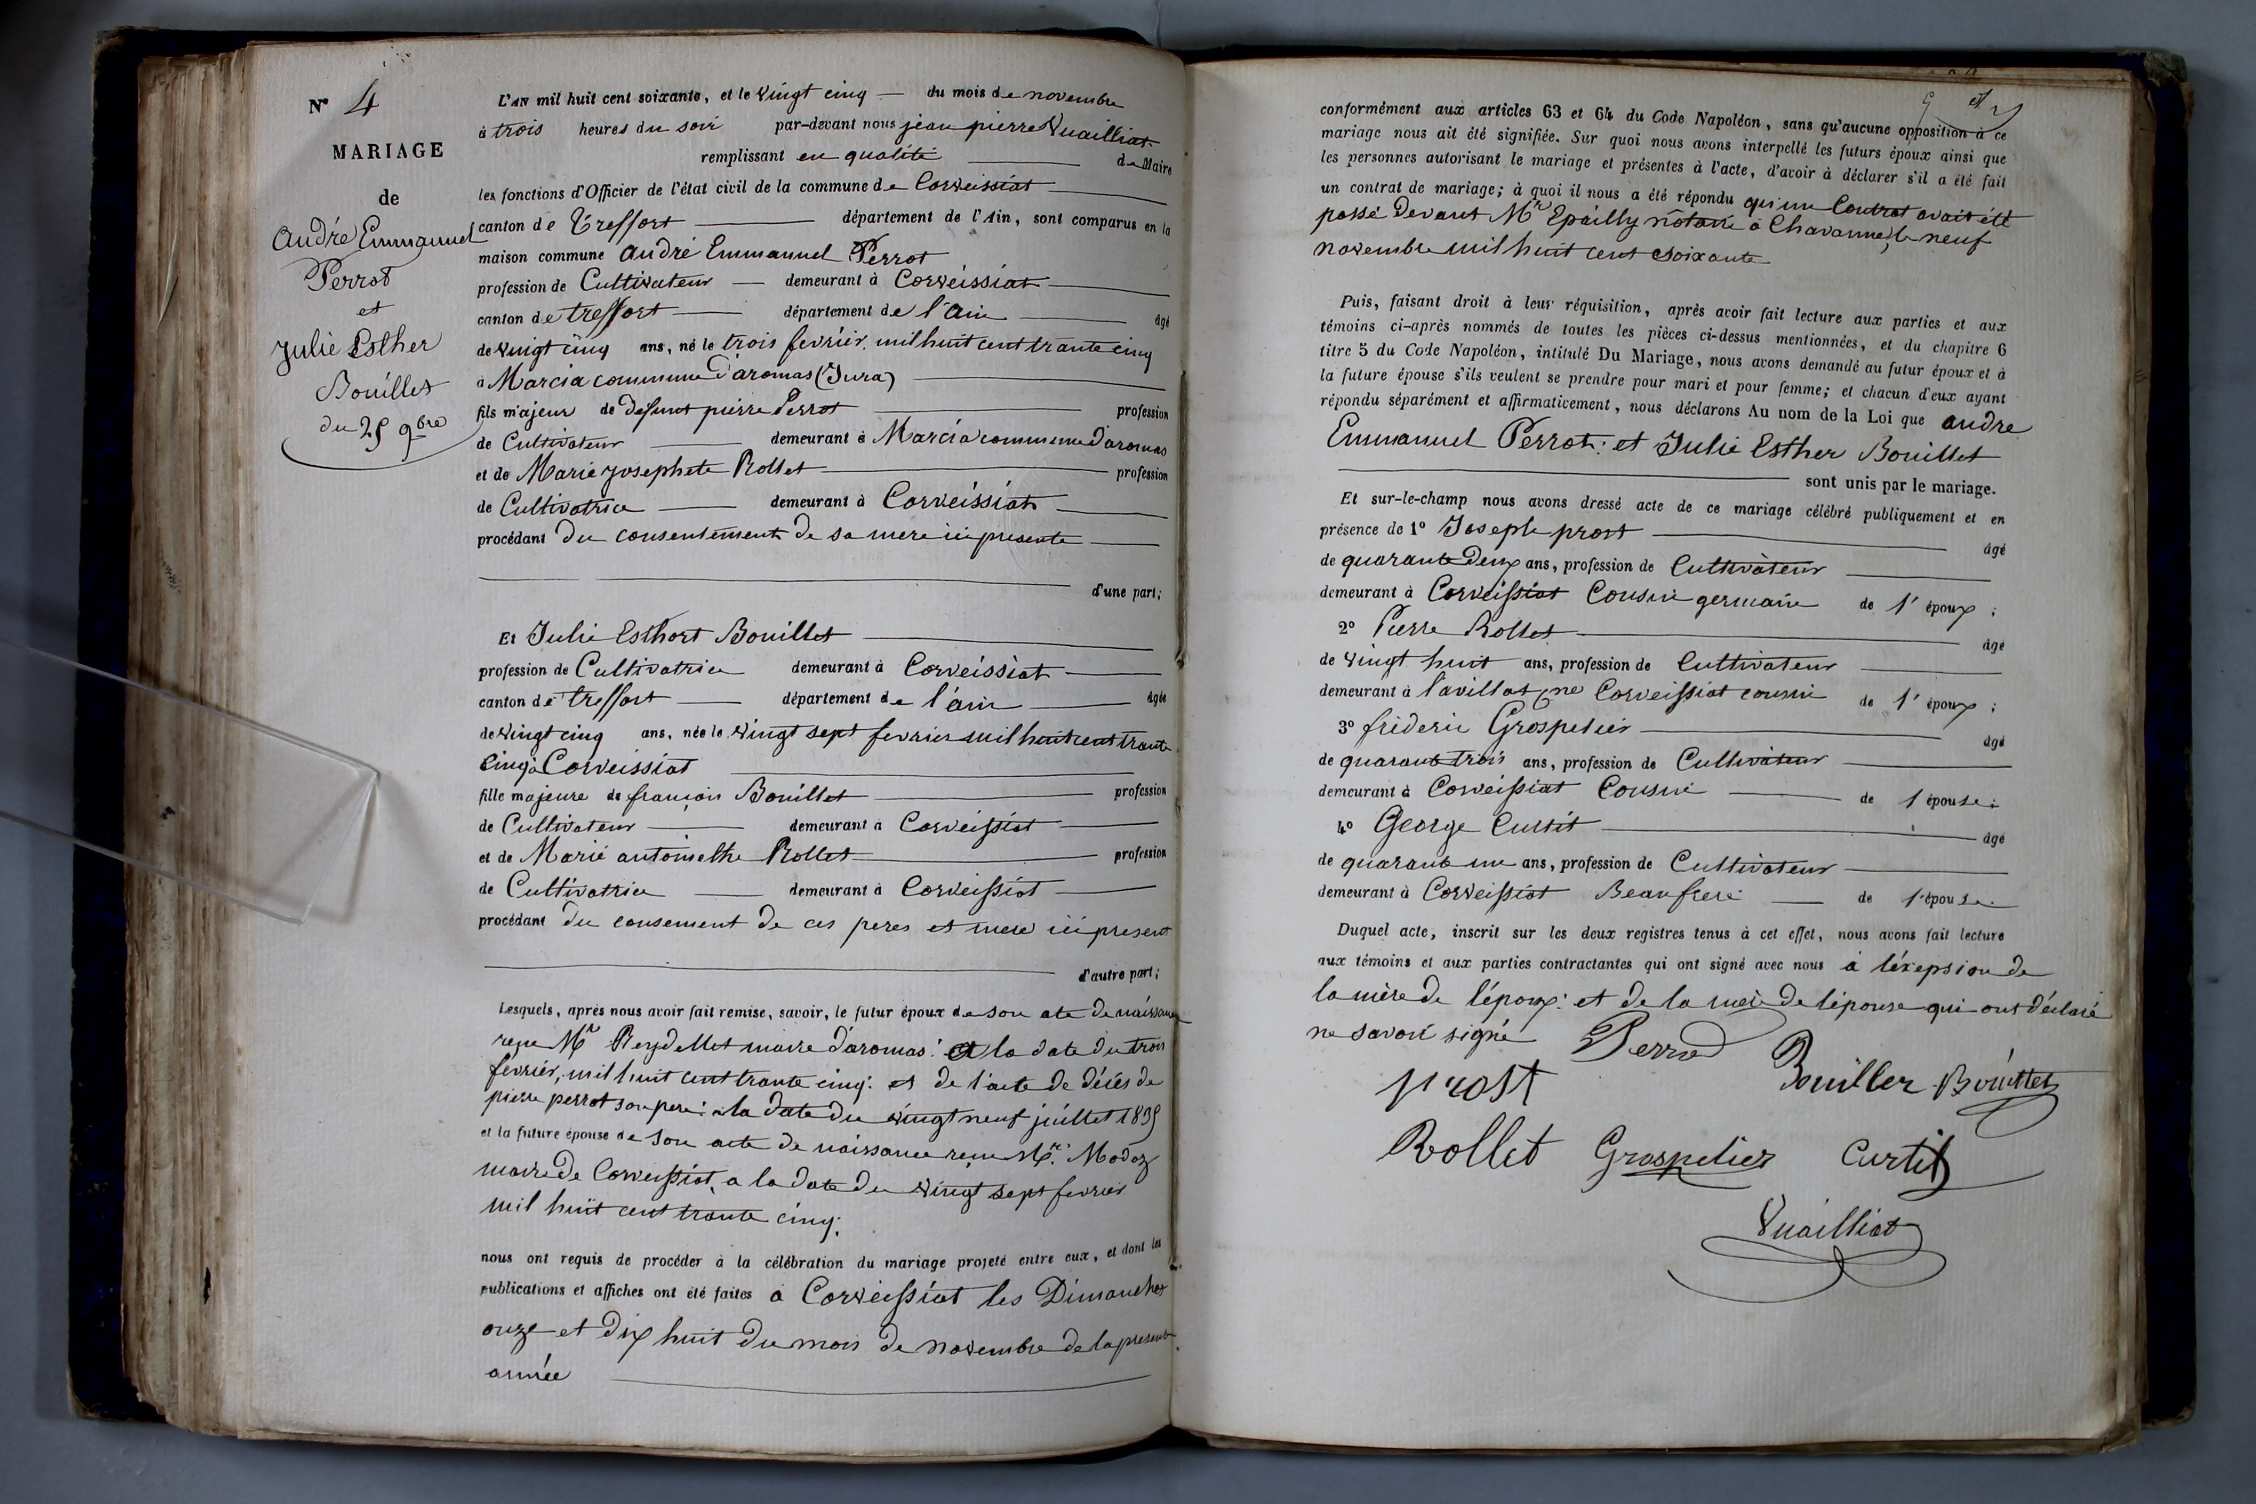 N° 4
MARIAGE
de
André Emmanuel
Perrot
et
Julie Esther
Bouillet
du 25 9bre
L'AN mil huit cent soixante, et le vingt cinq du mois de novembre
à trois heures du soir par-devant nous jean pierre Vuailliat
remplissant en qualité de Maire
les fonctions d'Officier de l'état civil de la commune de Corveissiat
canton de Treffort département de l'Ain, sont comparus en la
maison commune André Emmanuel Perrot
profession de Cultivateur demeurant à Corveissiat
canton de treffort département de l'ain âgé
de vingt cinq ans, né le trois fevriér mil huit cent trante cinq
à Marcia commune d'aromas (Jura)
fils majeur de defunt piérre Perrot profession
de Cultivateur demeurant à Marcia commune d'aromas
et de Marie josephete Rollet profession
de Cultivatrice demeurant à Corveissiat
procédant du consentement de sa mere ici presente
d'une part;
Et Julie Esthert Bouillet
profession de Cultivatrice demeurant à Corveissiat
canton de treffort département de l'ain âgée
de vingt cinq ans, née le vingt sept fevrier mil huit cent trante
cinq à Corveissiat
fille majeure de françois Bouillet profession
de Cultivateur demeurant à Corveissiat
et de Marie antoinethe Rollet profession
de Cultivatrice demeurant à Corveissiat
procédant du consement de ces peres et mere ici present
d'autre part;
Lesquels, après nous avoir fait remise, savoir, le futur époux de son ate de naissance
reçu Mr Reydellet maire d'aromas a la date du trois
fevriér, mil huit cent trante cinq. et de l'acte de décés de
pierre perrot son pere a la date du vingt neuf juillet 1839
et la future épouse de son acte de naissance reçu Mr. Modoz
maire de Corveissiat, a la date du vingt sept fevrier
mil huit cent trante cinq.
nous ont requis de procéder à la célébration du mariage projeté entre eux, et dont les
publications et affiches ont été faites a Corveissiat les Dimanches
onze et dix huit du mois de novembre de la presente
année
conformément aux articles 63 et 64 du Code Napoléon, sans qu'aucune opposition à ce
mariage nous ait été signifiée. Sur quoi nous avons interpellé les futurs époux ainsi que
les personnes autorisant le mariage et présentes à l'acte, d'avoir à déclarer s'il a été fait
un contrat de mariage; à quoi il nous a été répondu qu'un Contrat avait été
passé devant Mre Epailly notaire à Chavannes, le neuf
novembre mil huit cent soixante
Puis, faisant droit à leur réquisition, après avoir fait lecture aux parties et aux
témoins ci-après nommés de toutes les pièces ci-dessus mentionnées, et du chapitre 6
titre 5 du Code Napoléon, intitulé Du Mariage, nous avons demandé au futur époux et à
la future épouse s'ils veulent se prendre pour mari et pour femme; et chacun d'eux ayant
répondu séparément et affirmativement, nous déclarons Au nom de la Loi que andre
Emmanuel Perrot: et Julie Esther Bouillet
sont unis par le mariage.
Et sur-le-champ nous avons dressé acte de ce mariage célébré publiquement et en
présence de 1° Joseph prost âgé
de quarante deux ans, profession de Cultivateur
demeurant à Corveissiat Cousin germain de l' époux;
2° Pierre Rollet âgé
de vingt huit ans, profession de Cultivateur
demeurant à Cavillat cne Corveissiat cousin de l' époux;
3° frideric Grospelier âgé
de quarante trois ans, profession de Cultivateur
demeurant à Corveissiat Cousin de l'épouse;
4° George Curtit âgé
de quarante un ans, profession de Cultivateur
demeurant à Corveissiat Beau frere de l'épouse.
Duquel acte, inscrit sur les deux registres tenus à cet effet, nous avons fait lecture
aux témoins et aux parties contractantes qui ont signé avec nous à l'éxepsion de
la mère de l'époux: et de la mere de l'épouse qui ont déclaré
ne savoir signé Perrod
Bouiller Bouittet
prost
Rollet Grospelier Curtit
Vuailliat